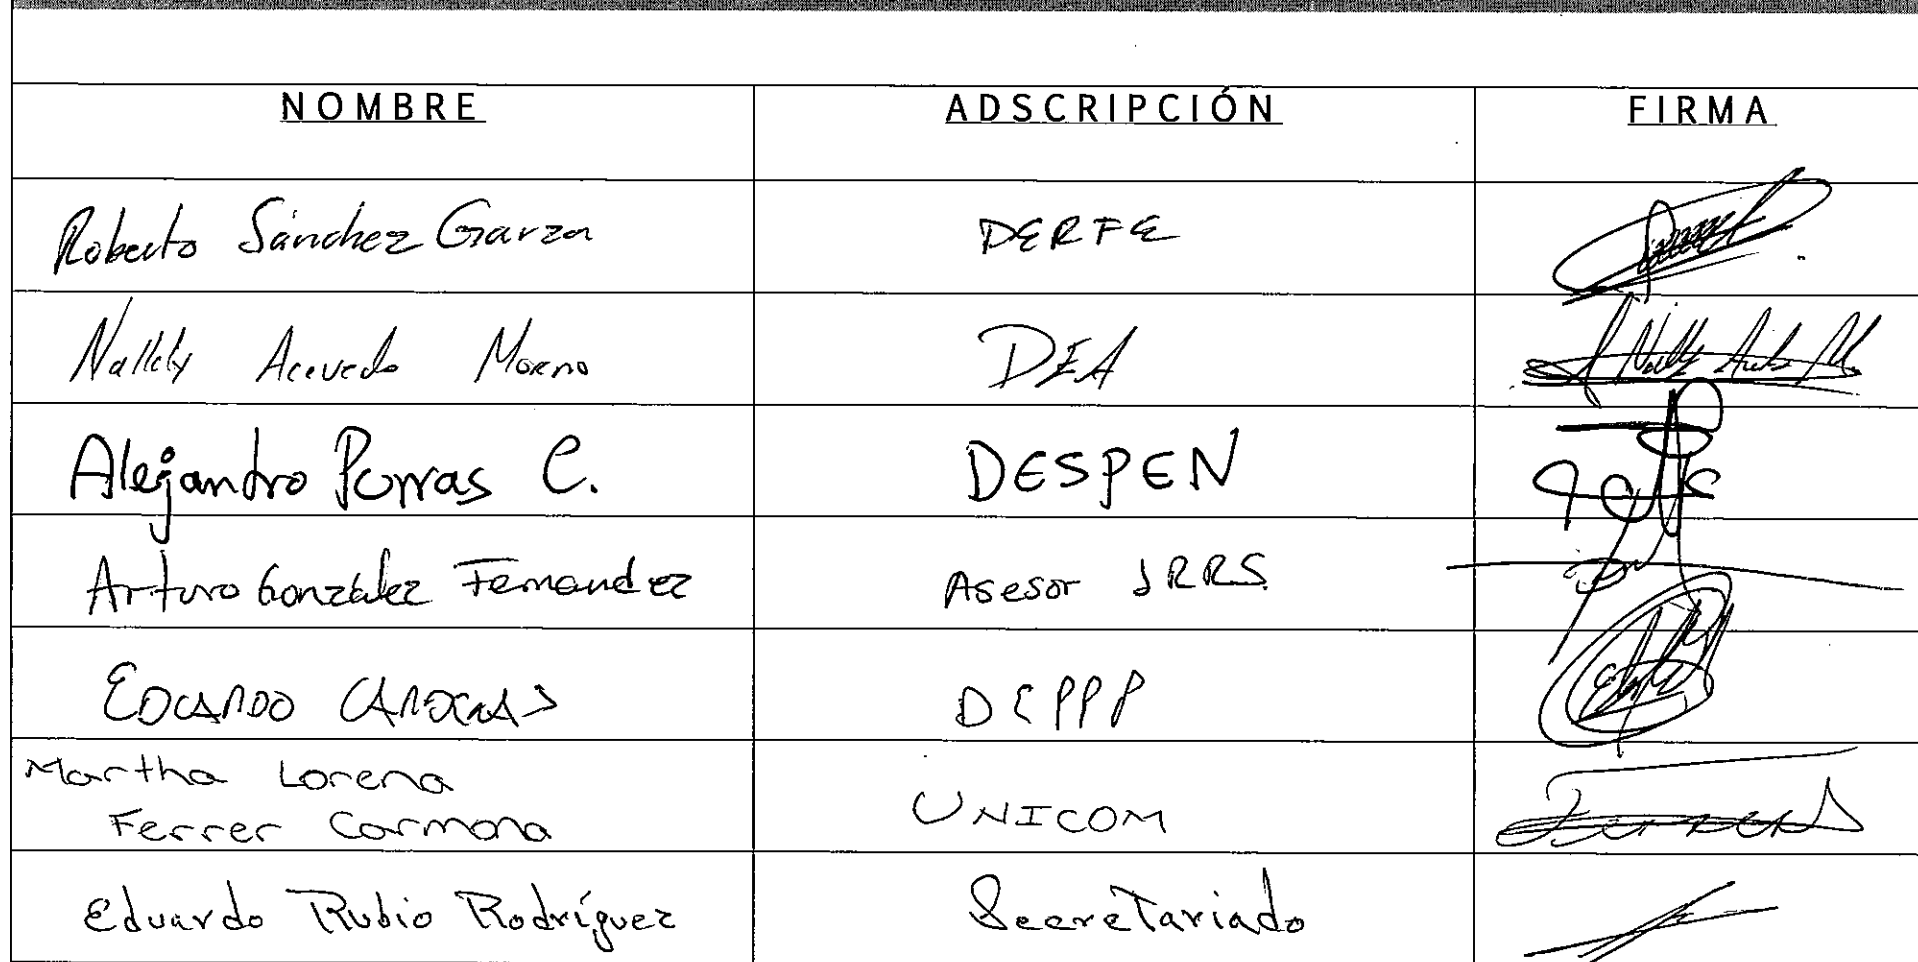 NOMBRE ADSCRIPCIÓN FIRMA
Roberto Sánchez Garza DERFE
Nallely Acevedo Moreno DEA
Alejandro Porras C. DESPEN
Arturo González Fernandez Asesor JRRS
EDUARDO CARDENAS DEPPP
Martha Lorena
Ferrer Carmona UNICOM
Eduardo Rubio Rodríguez Secretariado